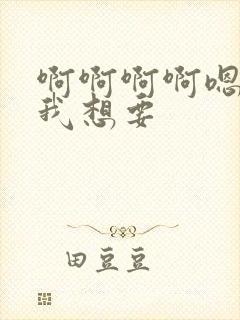 啊啊啊啊嗯
我想要
田豆豆